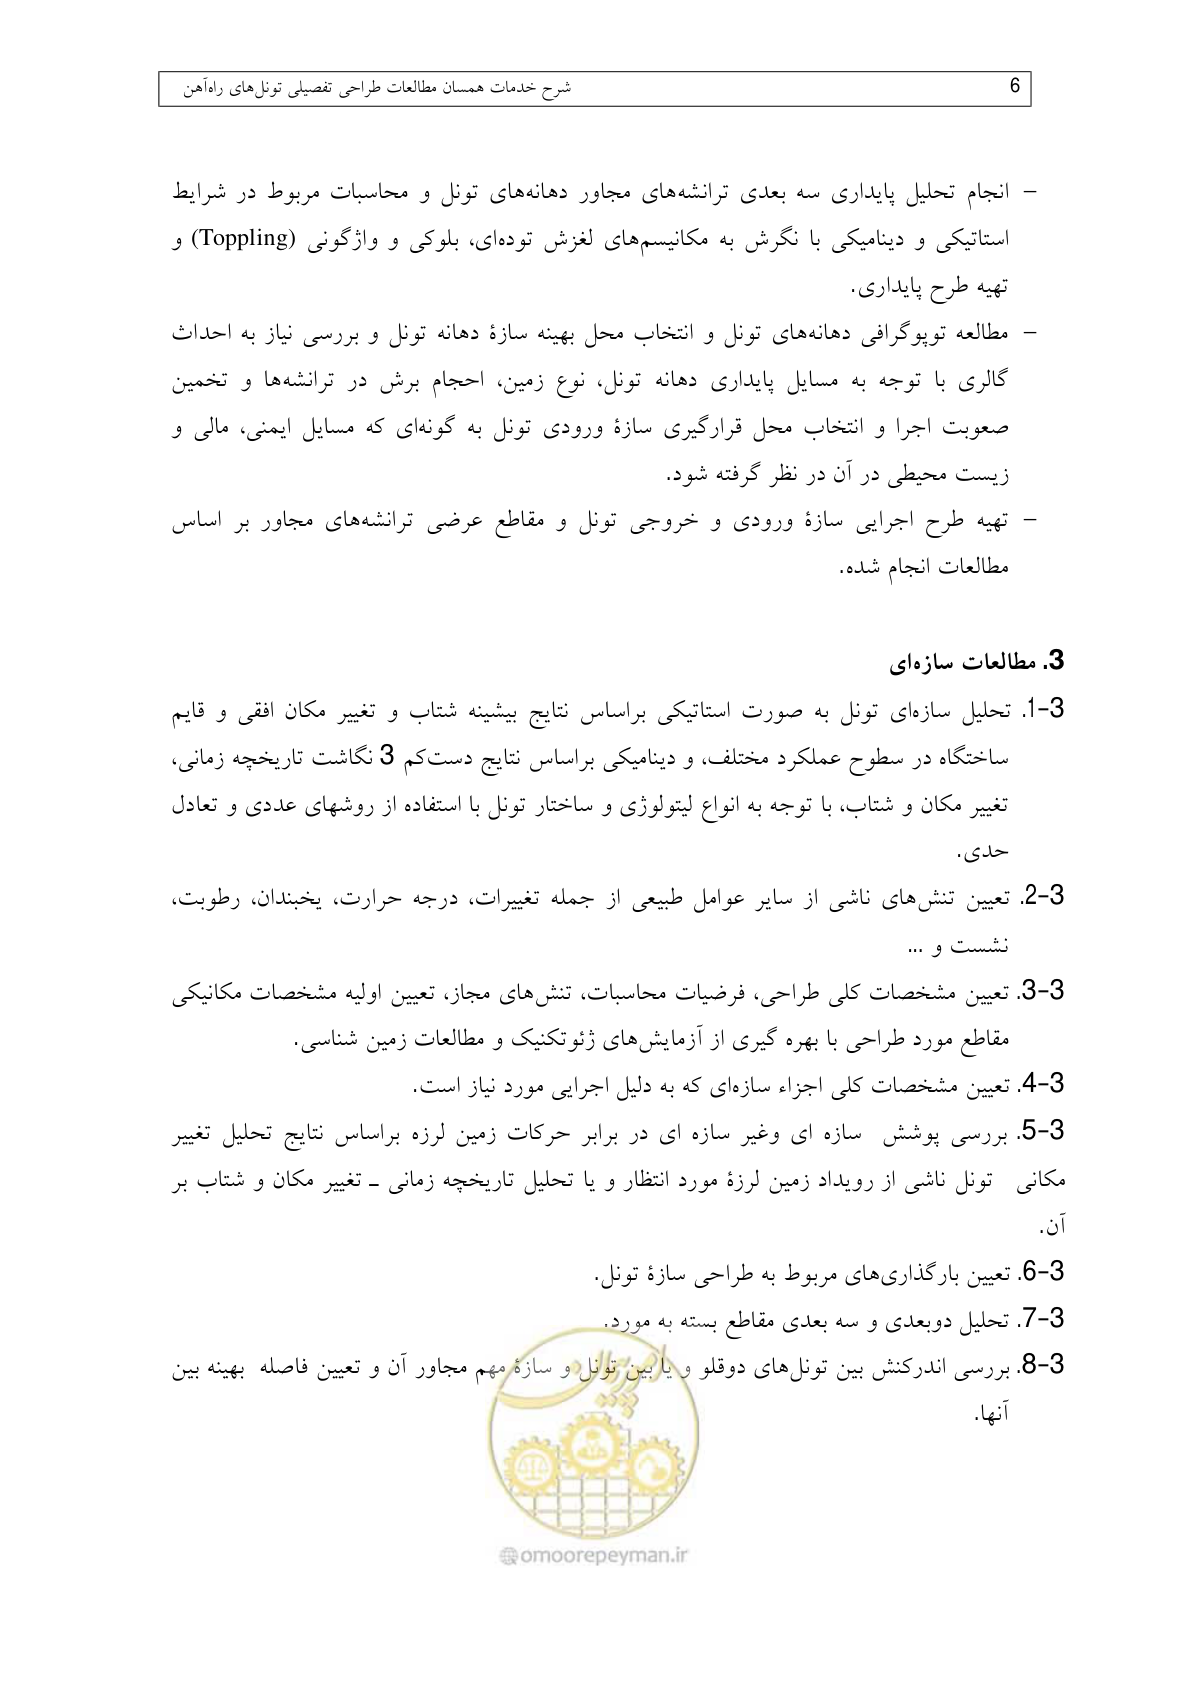 6 شرح خدمات همسان مطالعات طراحی تفصیلی تونل‌های راه‌آهن
– انجام تحلیل پایداری سه بعدی ترانشه‌های مجاور دهانه‌های تونل و محاسبات مربوط در شرایط
استاتیکی و دینامیکی با نگرش به مکانیسم‌های لغزش توده‌ای، بلوکی و واژگونی (Toppling) و
تهیه طرح پایداری.
– مطالعه توپوگرافی دهانه‌های تونل و انتخاب محل بهینه سازهٔ دهانه تونل و بررسی نیاز به احداث
گالری با توجه به مسایل پایداری دهانه تونل، نوع زمین، احجام برش در ترانشه‌ها و تخمین
صعوبت اجرا و انتخاب محل قرارگیری سازهٔ ورودی تونل به گونه‌ای که مسایل ایمنی، مالی و
زیست محیطی در آن در نظر گرفته شود.
– تهیه طرح اجرایی سازهٔ ورودی و خروجی تونل و مقاطع عرضی ترانشه‌های مجاور بر اساس
مطالعات انجام شده.
3. مطالعات سازه‌ای
3-1. تحلیل سازه‌ای تونل به صورت استاتیکی براساس نتایج بیشینه شتاب و تغییر مکان افقی و قایم
ساختگاه در سطوح عملکرد مختلف، و دینامیکی براساس نتایج دست‌کم 3 نگاشت تاریخچه زمانی،
تغییر مکان و شتاب، با توجه به انواع لیتولوژی و ساختار تونل با استفاده از روشهای عددی و تعادل
حدی.
3-2. تعیین تنش‌های ناشی از سایر عوامل طبیعی از جمله تغییرات، درجه حرارت، یخبندان، رطوبت،
نشست و ...
3-3. تعیین مشخصات کلی طراحی، فرضیات محاسبات، تنش‌های مجاز، تعیین اولیه مشخصات مکانیکی
مقاطع مورد طراحی با بهره گیری از آزمایش‌های ژئوتکنیک و مطالعات زمین شناسی.
3-4. تعیین مشخصات کلی اجزاء سازه‌ای که به دلیل اجرایی مورد نیاز است.
3-5. بررسی پوشش سازه ای وغیر سازه ای در برابر حرکات زمین لرزه براساس نتایج تحلیل تغییر
مکانی تونل ناشی از رویداد زمین لرزهٔ مورد انتظار و یا تحلیل تاریخچه زمانی ـ تغییر مکان و شتاب بر
آن.
3-6. تعیین بارگذاری‌های مربوط به طراحی سازهٔ تونل.
3-7. تحلیل دوبعدی و سه بعدی مقاطع بسته به مورد.
3-8. بررسی اندرکنش بین تونل‌های دوقلو و یا بین تونل و سازهٔ مهم مجاور آن و تعیین فاصله بهینه بین
آنها.
امور پیمان
@omoorepeyman.ir